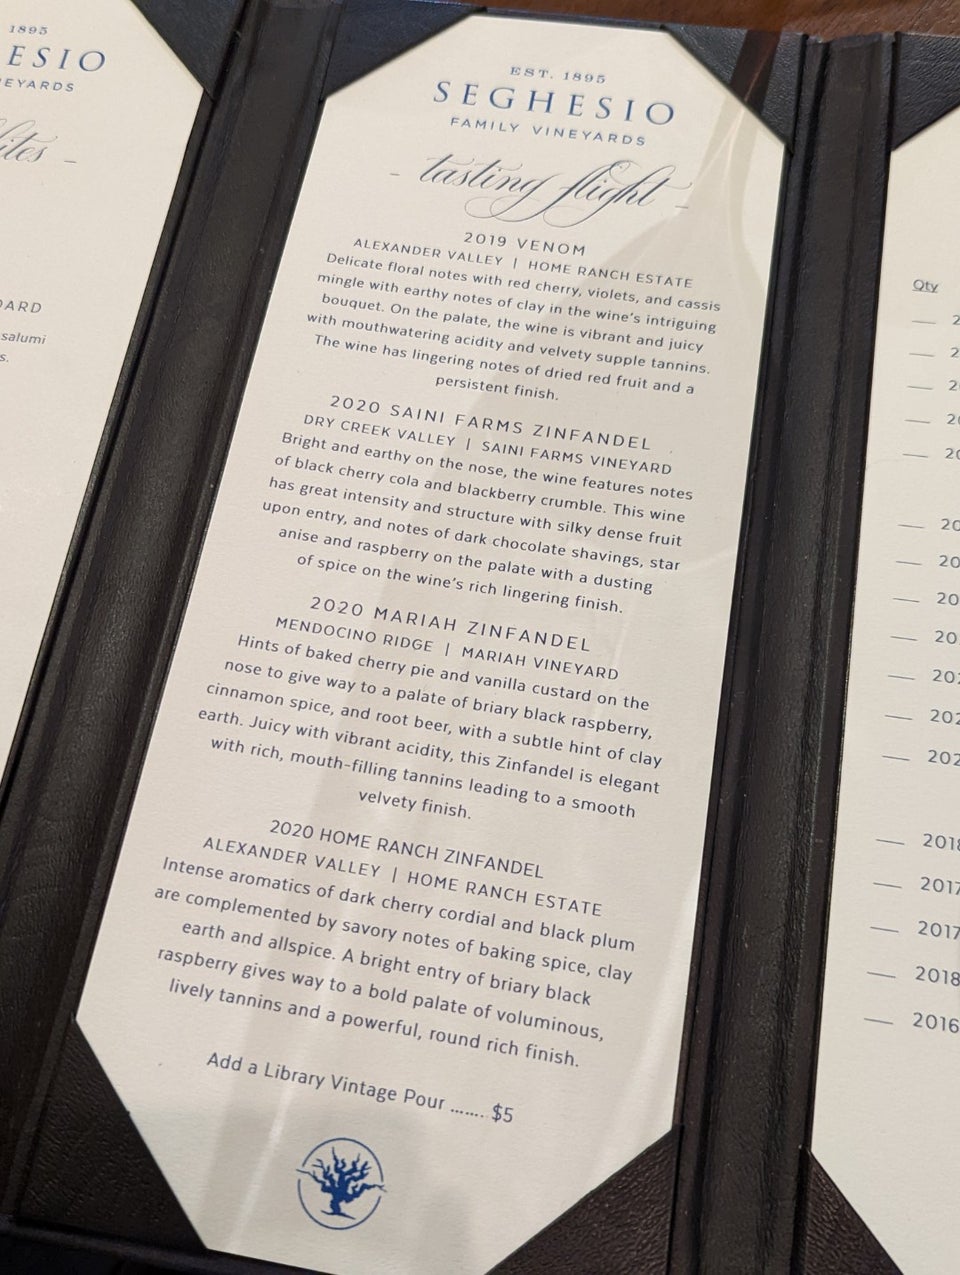 1895
ESIO
EYARDS
ites –
ARD
salumi
s.
EST. 1895
SEGHESIO
FAMILY VINEYARDS
- tasting flight -
2019 VENOM
ALEXANDER VALLEY | HOME RANCH ESTATE
Delicate floral notes with red cherry, violets, and cassis
mingle with earthy notes of clay in the wine's intriguing
bouquet. On the palate, the wine is vibrant and juicy
with mouthwatering acidity and velvety supple tannins.
The wine has lingering notes of dried red fruit and a
persistent finish.
2020 SAINI FARMS ZINFANDEL
DRY CREEK VALLEY | SAINI FARMS VINEYARD
Bright and earthy on the nose, the wine features notes
of black cherry cola and blackberry crumble. This wine
has great intensity and structure with silky dense fruit
upon entry, and notes of dark chocolate shavings, star
anise and raspberry on the palate with a dusting
of spice on the wine's rich lingering finish.
2020 MARIAH ZINFANDEL
MENDOCINO RIDGE | MARIAH VINEYARD
Hints of baked cherry pie and vanilla custard on the
nose to give way to a palate of briary black raspberry,
cinnamon spice, and root beer, with a subtle hint of clay
earth. Juicy with vibrant acidity, this Zinfandel is elegant
with rich, mouth-filling tannins leading to a smooth
velvety finish.
2020 HOME RANCH ZINFANDEL
ALEXANDER VALLEY | HOME RANCH ESTATE
Intense aromatics of dark cherry cordial and black plum
are complemented by savory notes of baking spice, clay
earth and allspice. A bright entry of briary black
raspberry gives way to a bold palate of voluminous,
lively tannins and a powerful, round rich finish.
Add a Library Vintage Pour ....... $5
Qty
— 2
— 2
— 2
— 20
— 20
— 20
— 20
— 20
— 20
— 202
— 202
— 202
— 2018
— 2017
— 2017
— 2018
— 2016